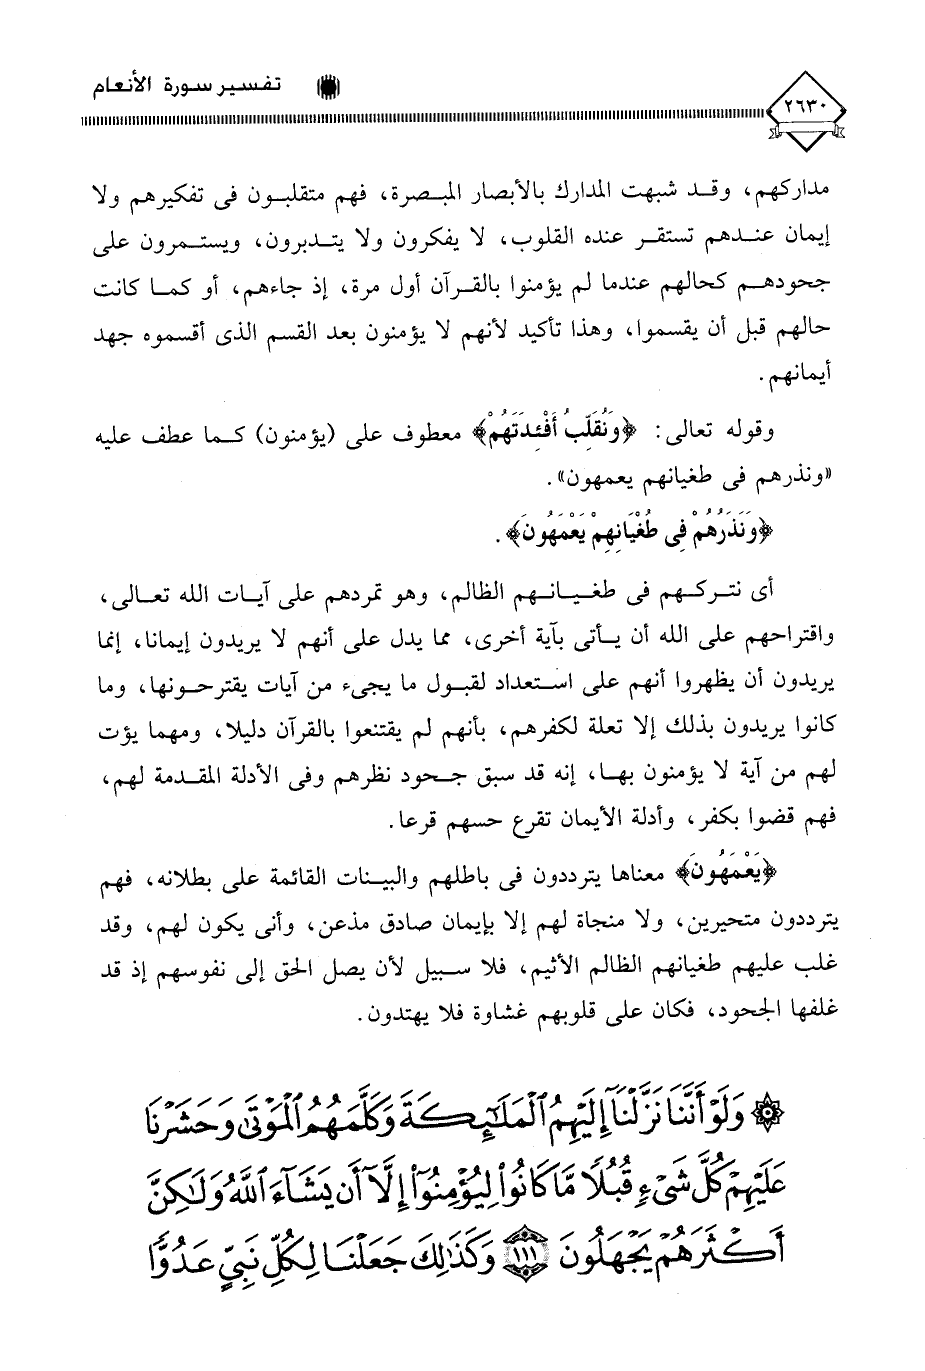 ٢٦٣٠
تفسير سورة الأنعام
مداركهم، وقد شبهت المدارك بالأبصار المبصرة، فهم متقلبون فى تفكيرهم ولا
إيمان عندهم تستقر عنده القلوب، لا يفكرون ولا يتدبرون، ويستمرون على
جحودهم كحالهم عندما لم يؤمنوا بالقرآن أول مرة، إذ جاءهم، أو كما كانت
حالهم قبل أن يقسموا، وهذا تأكيد لأنهم لا يؤمنون بعد القسم الذى أقسموه جهد
أيمانهم.
وقوله تعالى: ﴿وَنُقَلِّبُ أَفْئِدَتَهُمْ﴾ معطوف على (يؤمنون) كما عطف عليه
«ونذرهم فى طغيانهم يعمهون».
﴿وَنَذَرُهُمْ فِى طُغْيَانِهِمْ يَعْمَهُونَ﴾.
أى نتركهم فى طغيانهم الظالم، وهو تمردهم على آيات الله تعالى،
واقتراحهم على الله أن يأتى بآية أخرى، مما يدل على أنهم لا يريدون إيمانا، إنما
يريدون أن يظهروا أنهم على استعداد لقبول ما يجىء من آيات يقترحونها، وما
كانوا يريدون بذلك إلا تعلة لكفرهم، بأنهم لم يقتنعوا بالقرآن دليلا، ومهما يؤت
لهم من آية لا يؤمنون بها، إنه قد سبق جحود نظرهم وفى الأدلة المقدمة لهم،
فهم قضوا بكفر، وأدلة الأيمان تقرع حسهم قرعا.
﴿يَعْمَهُونَ﴾ معناها يترددون فى باطلهم والبينات القائمة على بطلانه، فهم
يترددون متحيرين، ولا منجاة لهم إلا بإيمان صادق مذعن، وأنى يكون لهم، وقد
غلب عليهم طغيانهم الظالم الأثيم، فلا سبيل لأن يصل الحق إلى نفوسهم إذ قد
غلفها الجحود، فكان على قلوبهم غشاوة فلا يهتدون.
۞ وَلَوْ أَنَّنَا نَزَّلْنَآ إِلَيْهِمُ ٱلْمَلَـٰٓئِكَةَ وَكَلَّمَهُمُ ٱلْمَوْتَىٰ وَحَشَرْنَا
عَلَيْهِمْ كُلَّ شَىْءٍ قُبُلًا مَّا كَانُوا۟ لِيُؤْمِنُوٓا۟ إِلَّآ أَن يَشَآءَ ٱللَّهُ وَلَـٰكِنَّ
أَكْثَرَهُمْ يَجْهَلُونَ ١١١ وَكَذَٰلِكَ جَعَلْنَا لِكُلِّ نَبِىٍّ عَدُوًّا